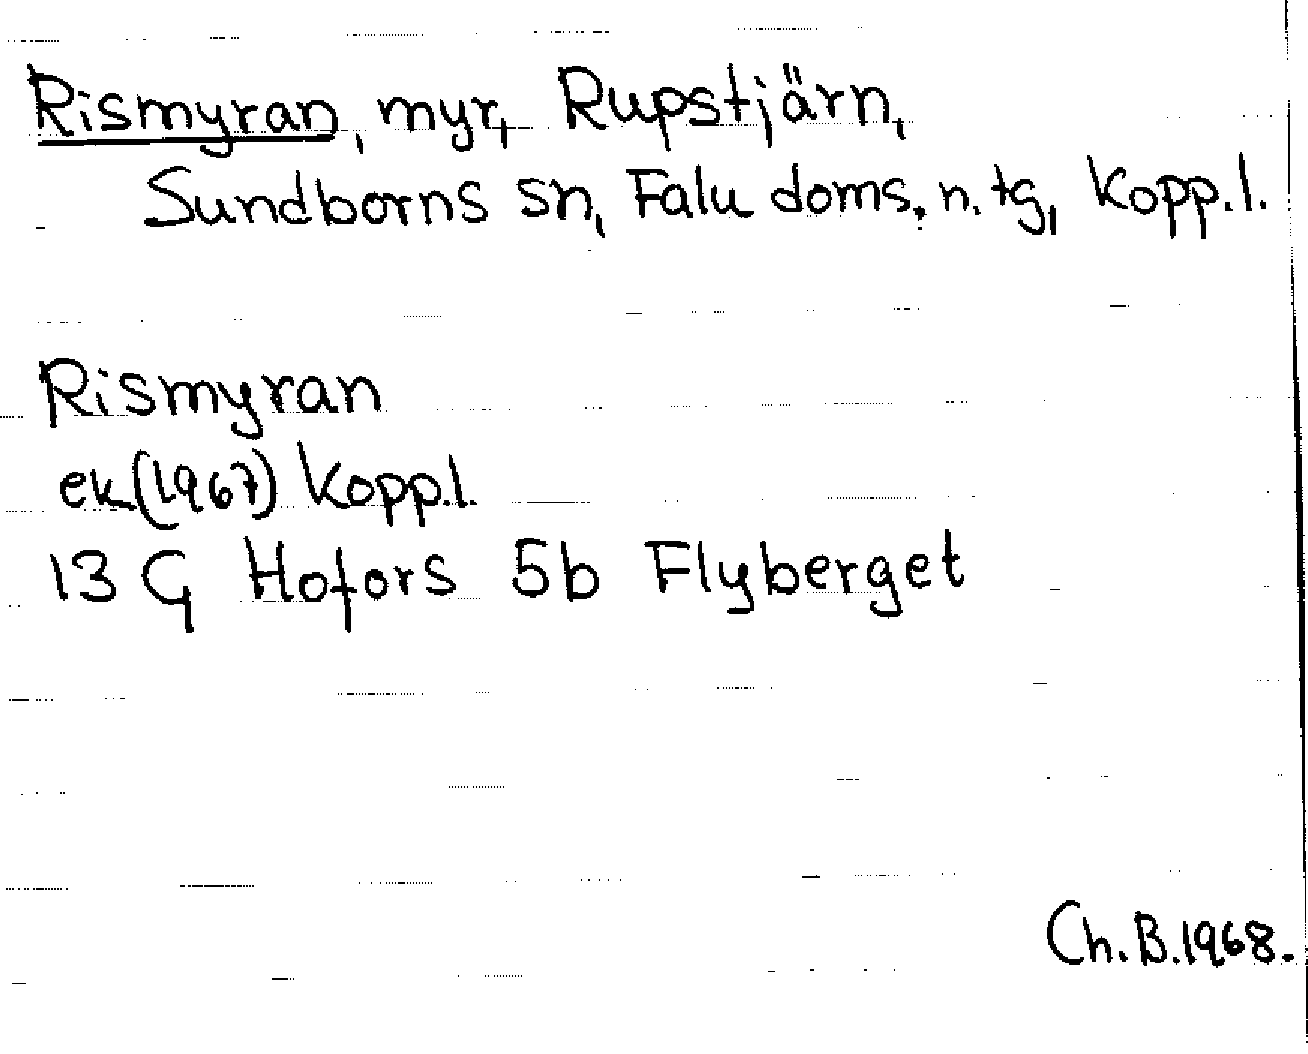 Rismyran, myr, Rupstjärn,
Sundborns sn, Falu doms. n. tg, Kopp.l.
Rismyran
ek (1967) Kopp.l.
13 G Hofors 5b Flyberget
Ch.B.1968.